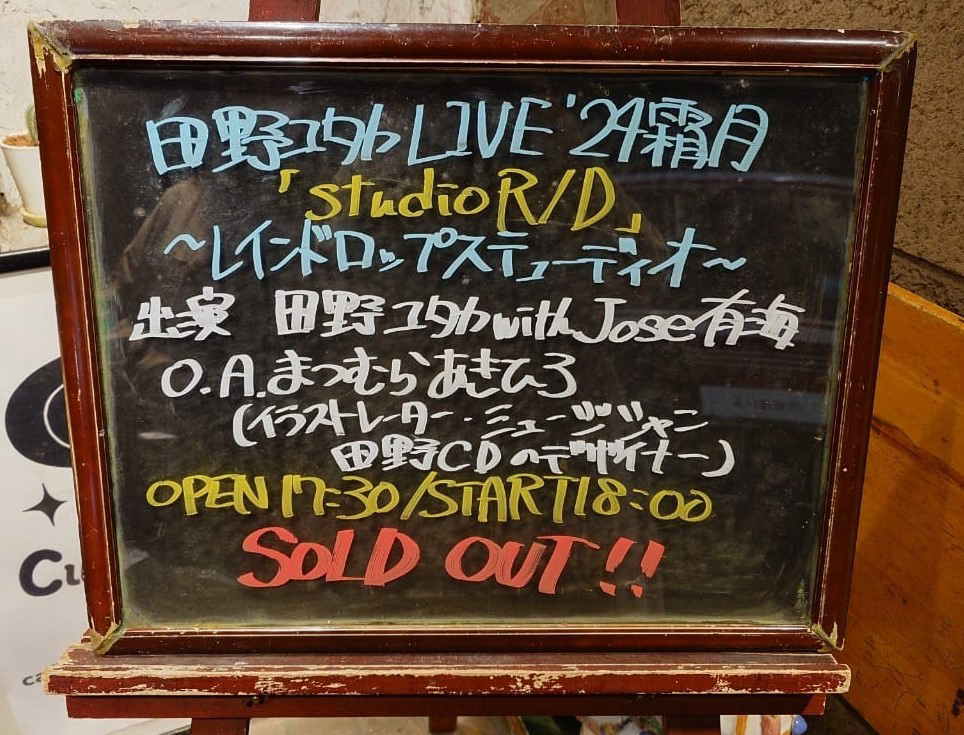 田野ユタカ LIVE '24霜月
「studio R/D」
～レインドロップスデューディオ～
出演 田野ユタカ with Jose有海
O.A.まつむらあきひろ
(イラストレーター・ミュージシャン
田野CDのデザイナー)
OPEN 17:30/START 18:00
SOLD OUT!!
Cu
ca